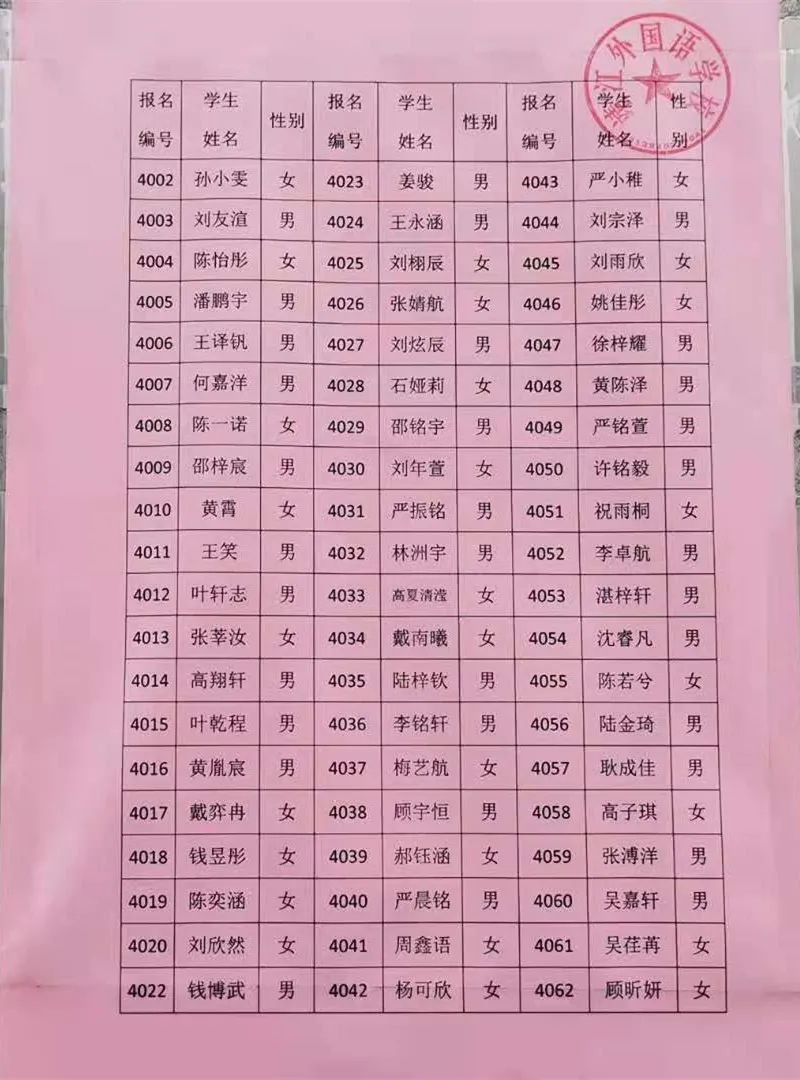 外国语学校
报名编号 学生姓名 性别 报名编号 学生姓名 性别 报名编号 学生姓名 性别
4002 孙小雯 女 4023 姜骏 男 4043 严小稚 女
4003 刘友渲 男 4024 王永涵 男 4044 刘宗泽 男
4004 陈怡彤 女 4025 刘栩辰 女 4045 刘雨欣 女
4005 潘鹏宇 男 4026 张婧航 女 4046 姚佳彤 女
4006 王译钒 男 4027 刘炫辰 男 4047 徐梓耀 男
4007 何嘉洋 男 4028 石娅莉 女 4048 黄陈泽 男
4008 陈一诺 女 4029 邵铭宇 男 4049 严铭萱 男
4009 邵梓宸 男 4030 刘年萱 女 4050 许铭毅 男
4010 黄霄 女 4031 严振铭 男 4051 祝雨桐 女
4011 王笑 男 4032 林洲宇 男 4052 李卓航 男
4012 叶轩志 男 4033 高夏清滢 女 4053 湛梓轩 男
4013 张莘汝 女 4034 戴南曦 女 4054 沈睿凡 男
4014 高翔轩 男 4035 陆梓钦 男 4055 陈若兮 女
4015 叶乾程 男 4036 李铭轩 男 4056 陆金琦 男
4016 黄胤宸 男 4037 梅艺航 女 4057 耿成佳 男
4017 戴弈冉 女 4038 顾宇恒 男 4058 高子琪 女
4018 钱昱彤 女 4039 郝钰涵 女 4059 张溥洋 男
4019 陈奕涵 女 4040 严晨铭 男 4060 吴嘉轩 男
4020 刘欣然 女 4041 周鑫语 女 4061 吴荏苒 女
4022 钱博武 男 4042 杨可欣 女 4062 顾昕妍 女